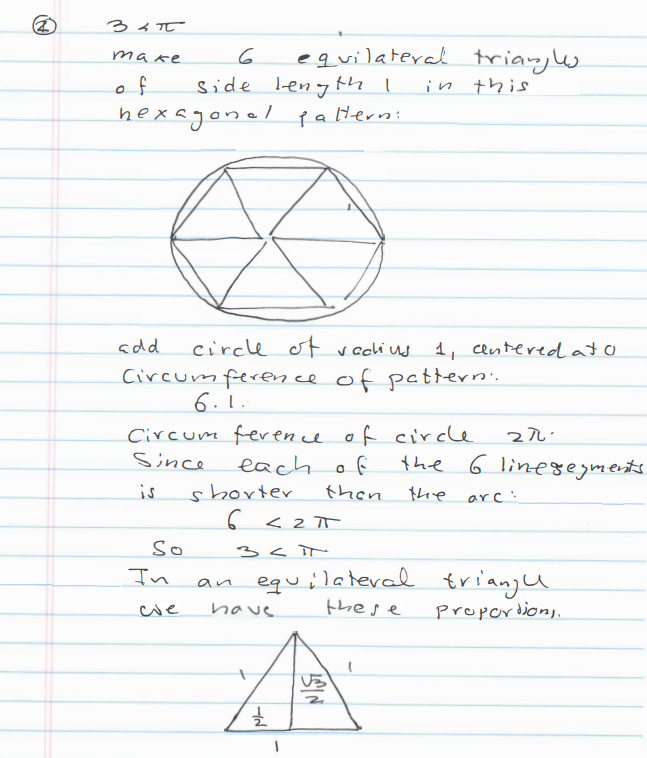 ① 3 < π
make 6 equilateral triangles
of side length 1 in this
hexagonal pattern:
1
add circle of radius 1, centered at 0
Circumference of pattern:
6.1.
Circumference of circle 2π.
Since each of the 6 linesegments
is shorter than the arc:
6 < 2π
So 3 < π
In an equilateral triangle
we have these proportions.
1 1
√3/2
1/2
1